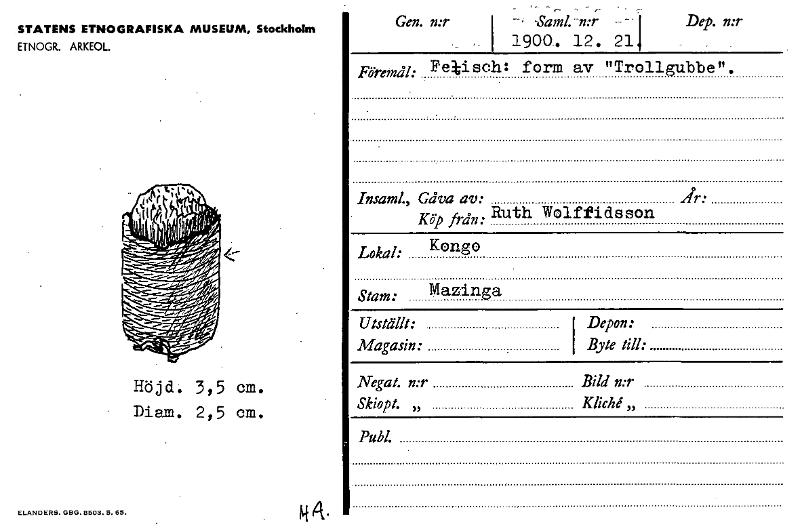 STATENS ETNOGRAFISKA MUSEUM, Stockholm
ETNOGR. ARKEOL.
Höjd. 3,5 cm.
Diam. 2,5 cm.
ELANDERS. GBG. 8503. B. 65.
HA.
Gen. n:r Saml. n:r Dep. n:r
1900. 12. 21.
Föremål: Fetisch: form av "Trollgubbe".
Insaml., Gåva av: År:
Köp från: Ruth Wolffidsson
Lokal: Kongo
Stam: Mazinga
Utställt: Depon:
Magasin: Byte till:
Negat. n:r Bild n:r
Skiopt. „ Kliché „
Publ.